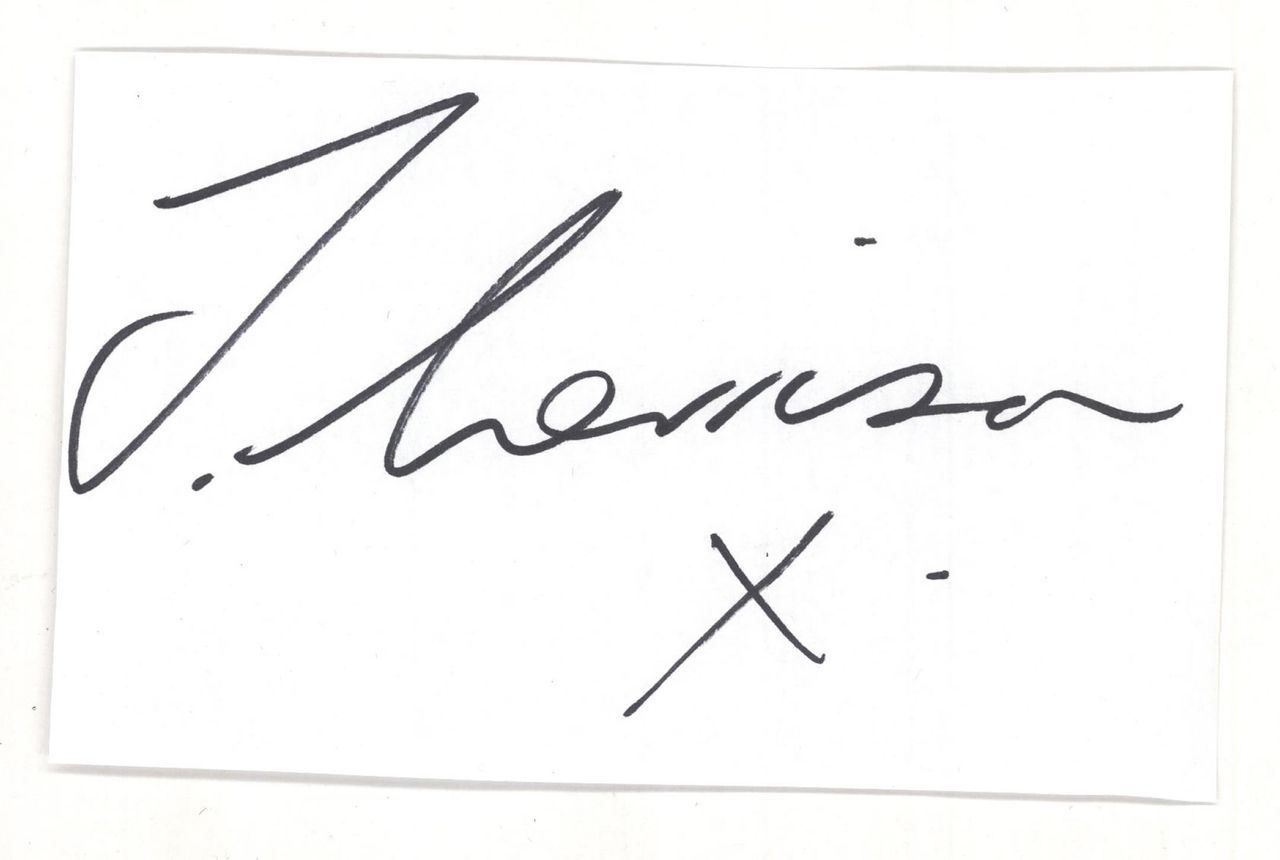 J. Morrison
X